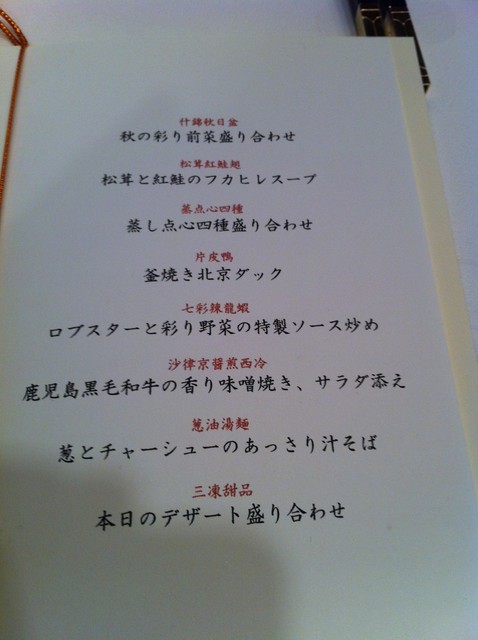 什錦秋日盆
秋の彩り前菜盛り合わせ
松茸紅鮭翅
松茸と紅鮭のフカヒレスープ
蒸点心四種
蒸し点心四種盛り合わせ
片皮鴨
釜焼き北京ダック
七彩辣龍蝦
ロブスターと彩り野菜の特製ソース炒め
沙律京醤煎西冷
鹿児島黒毛和牛の香り味噌焼き、サラダ添え
葱油湯麺
葱とチャーシューのあっさり汁そば
三凍甜品
本日のデザート盛り合わせ